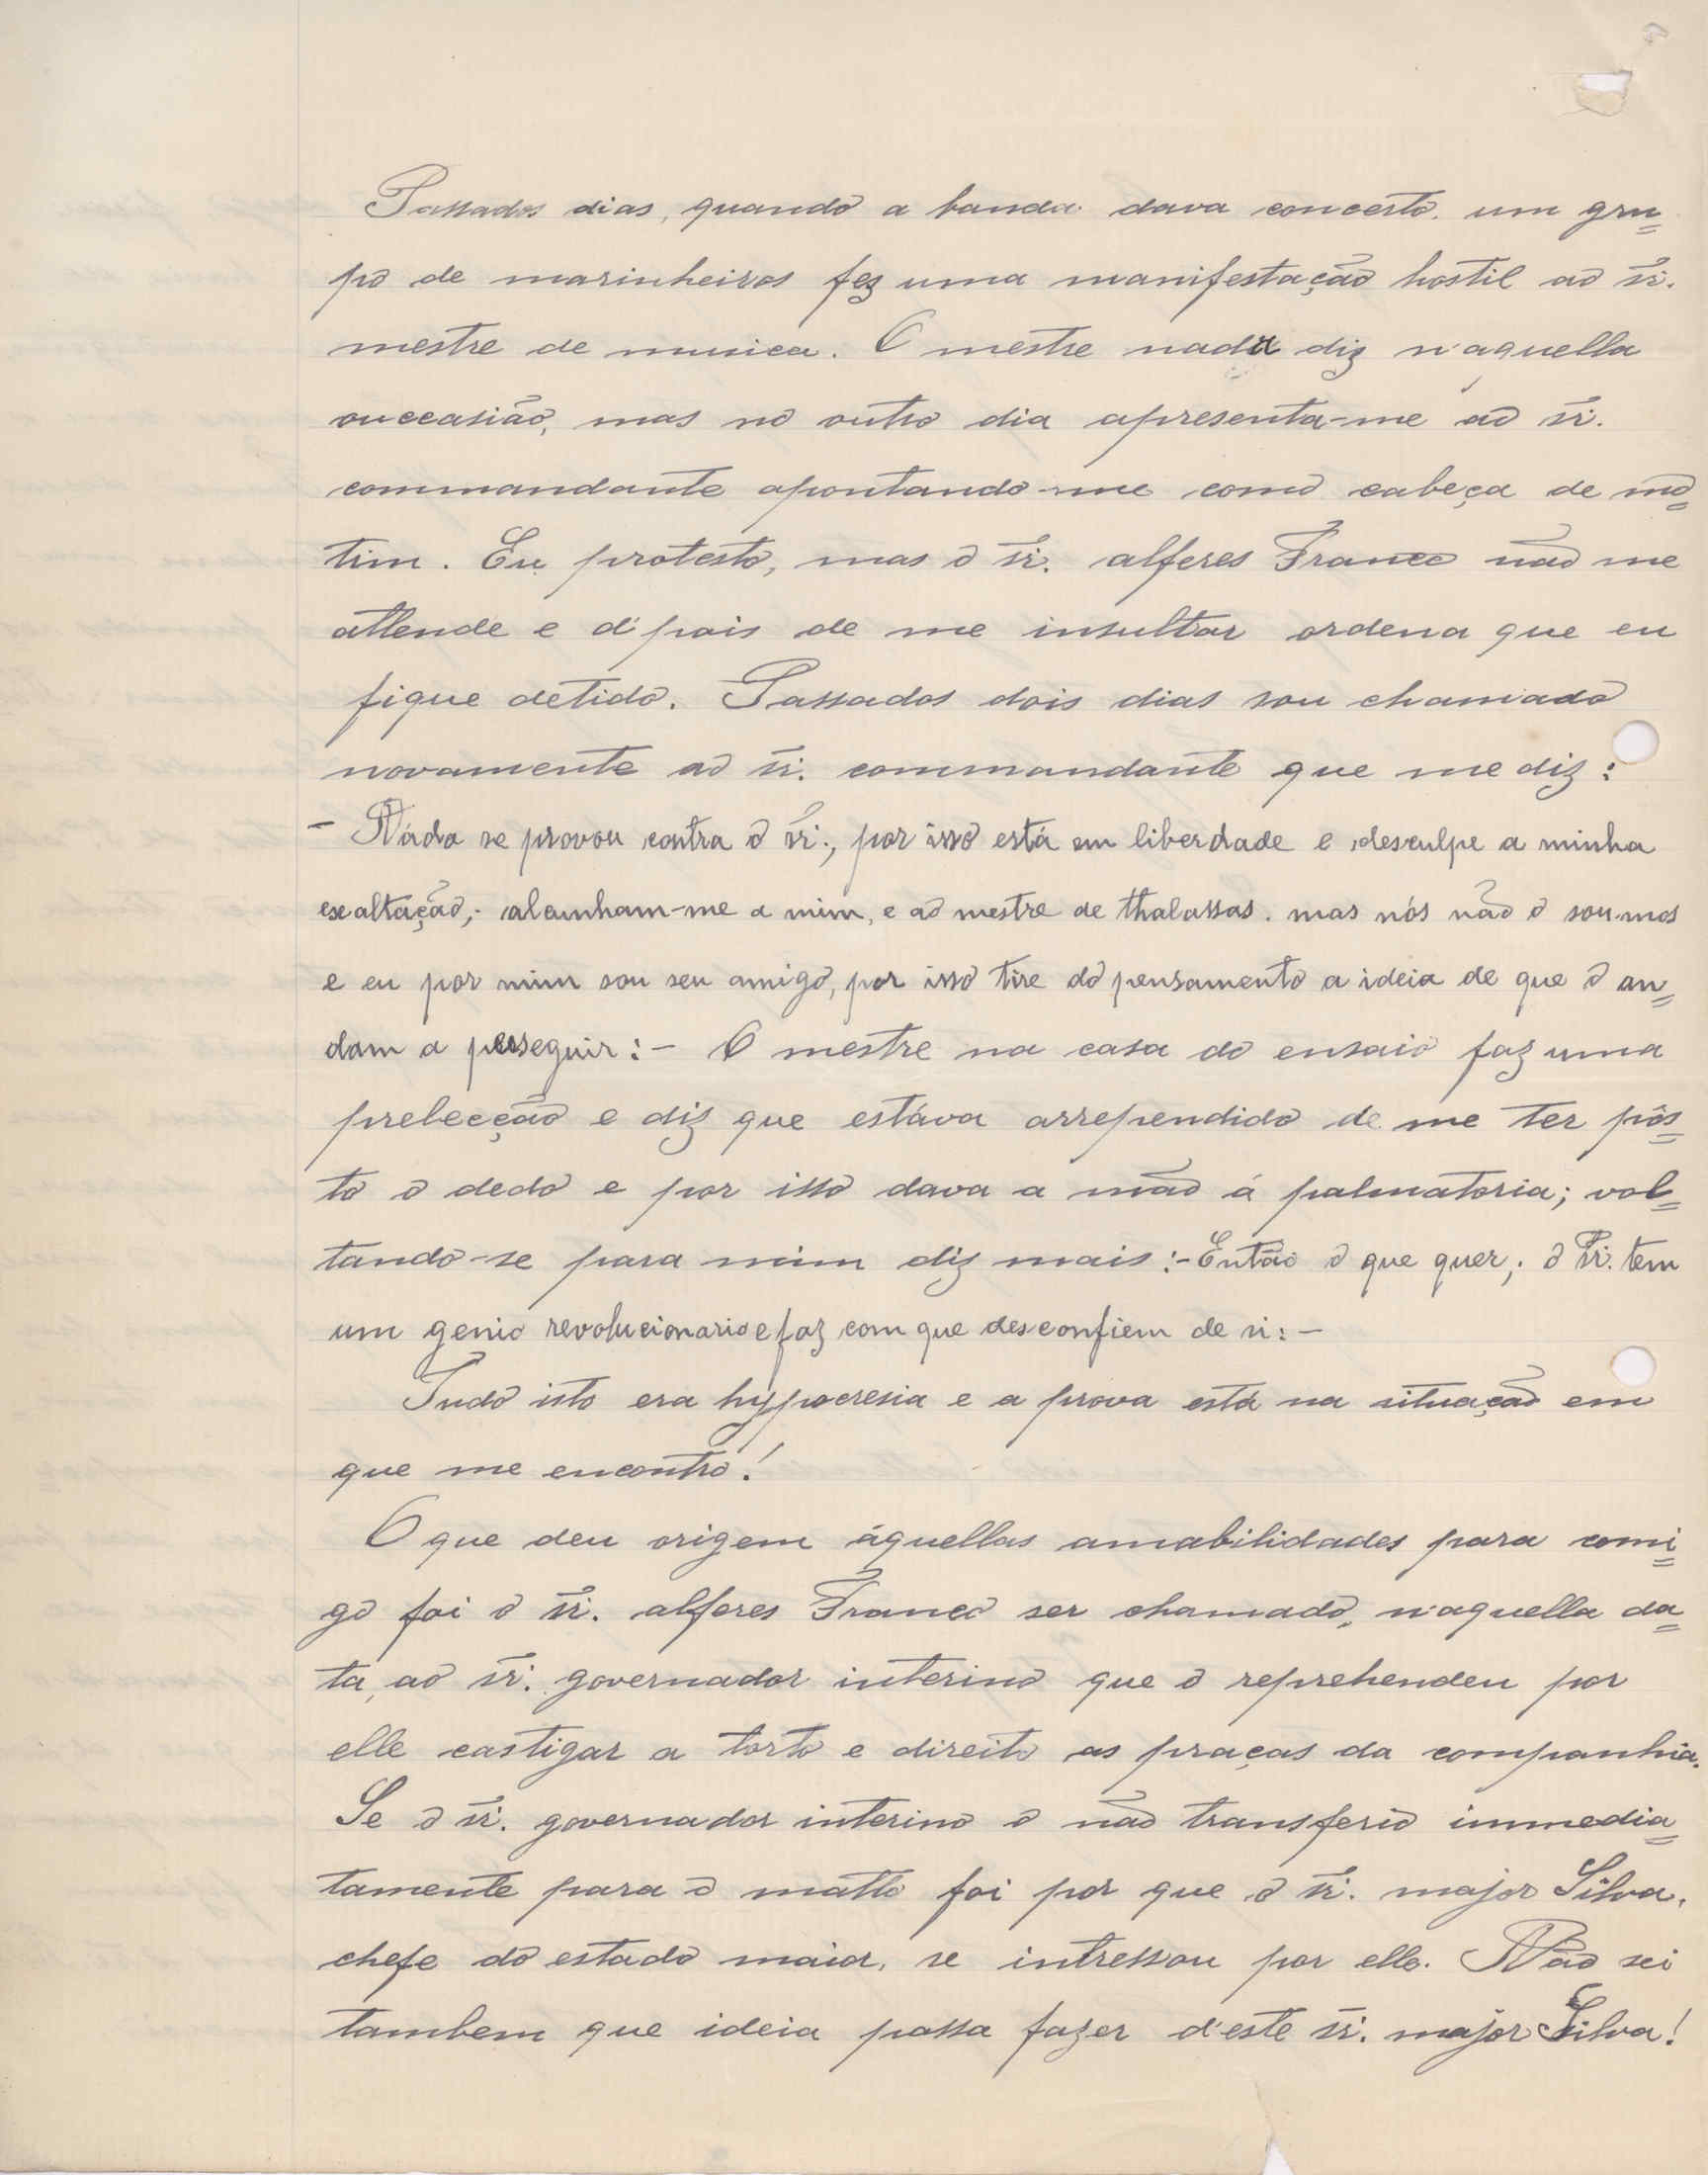 Passados dias, quando a banda dava concerto, um gru=
po de marinheiros fez uma manifestação hostil ao sr.
mestre de musica. O mestre nada diz n'aquella
ouccasião, mas no outro dia apresenta-me ao sr.
commandante apontando-me como cabeça de mo=
tim. Eu protesto, mas o sr. alferes Franco não me
attende e d'pois de me insultar ordena que eu
fique detido. Passados dois dias sou chamado
novamente ao sr. commandante que me diz:
- Náda se provou contra o sr., por isso está em liberdade e desculpe a minha
exaltação; alcunham-me a mim, e ao mestre de thalassas. mas nós não o soumos
e eu por mim sou seu amigo, por isso tire do pensamento a ideia de que o an=
dam a perseguir:- O mestre na casa do ensaio faz uma
prelecção e diz que estáva arrependido de me ter pôs=
to o dedo e por isso dava a mão á palmatoria; vol=
tando-se para mim diz mais:- Então o que quer; o Sr. tem
um genio revolucionario e faz com que desconfiem de si:-
Tudo isto era hyppocresia e a prova está na situação em
que me encontro!
O que deu origem áquellas amabilidades para comi=
go foi o sr. alferes Franco ser chamado, n'aquella da=
ta, ao sr. governador interino que o reprehendeu por
elle castigar a torto e direito as praças da companhia.
Se o sr. governador interino o não transferio immedia=
tamente para o matto foi por que o sr. major Silva,
chefe do estado maior, se intressou por elle. Não sei
tambem que ideia possa fazer d'este sr. major Silva!